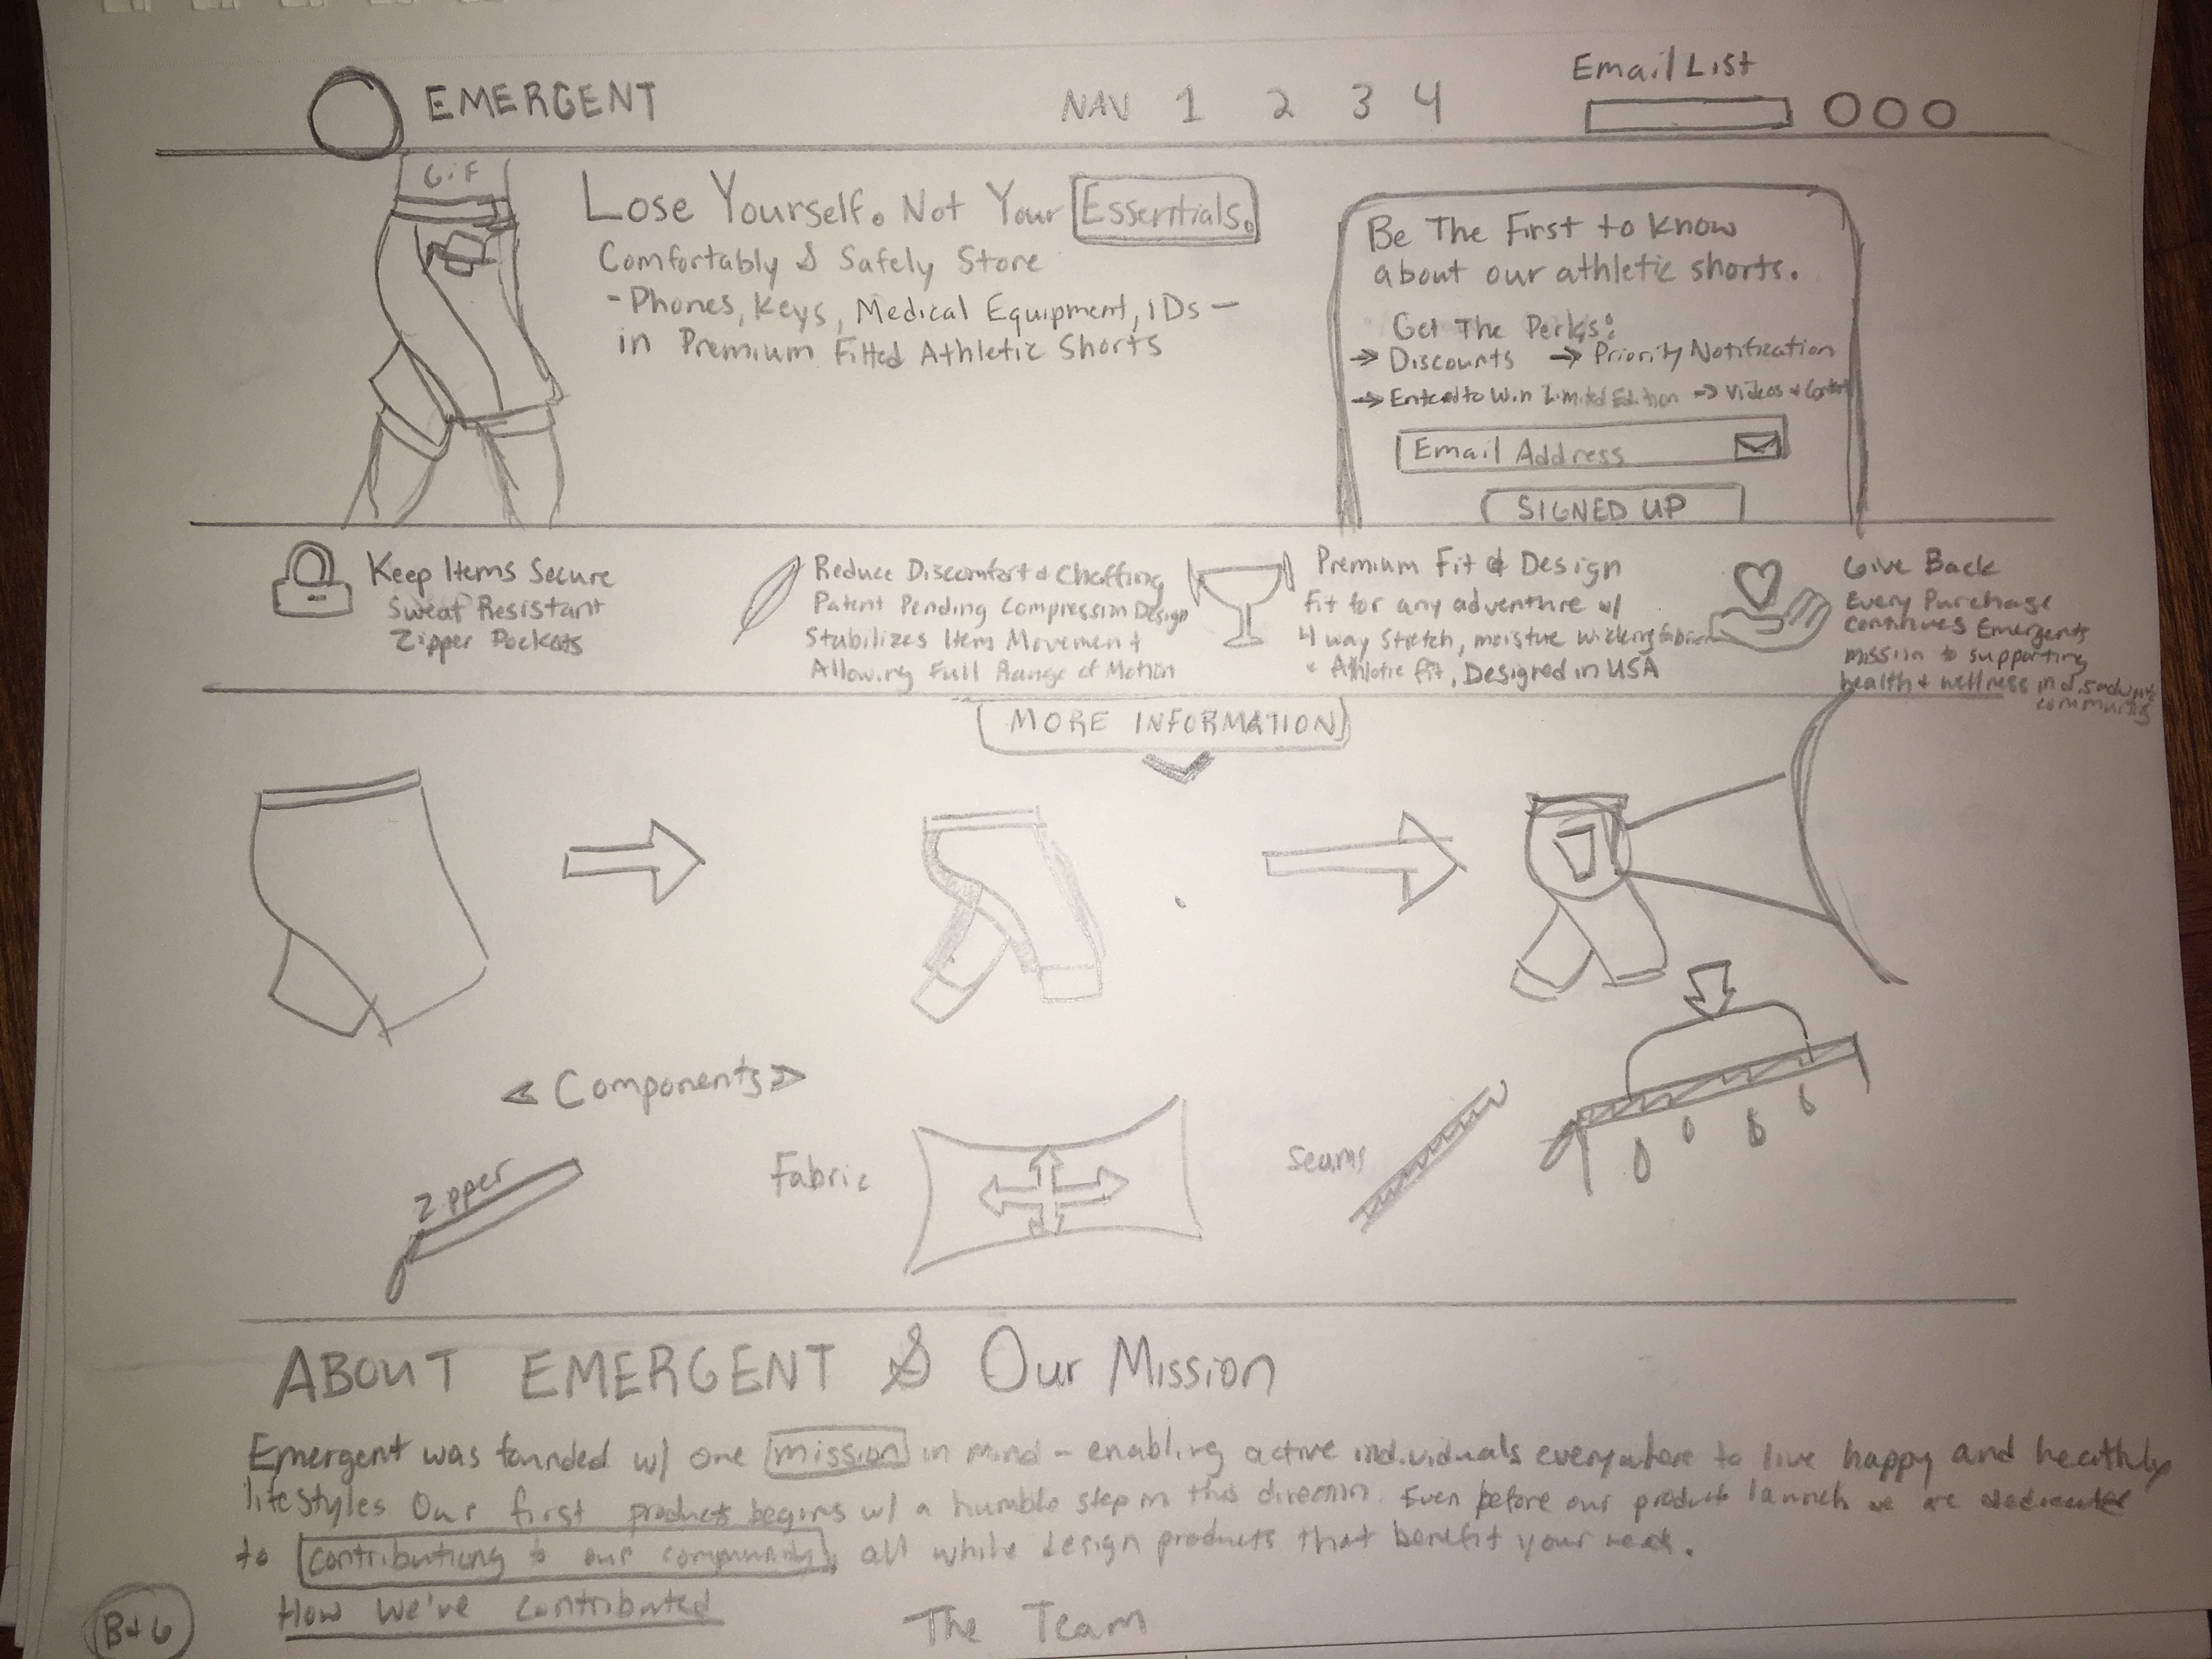 EMERGENT
NAV 1 2 3 4
Email List
GiF
Lose Yourself. Not Your Essentials.
Comfortably & Safely Store
- Phones, Keys, Medical Equipment, IDs -
in Premium Fitted Athletic Shorts
Be The First to know
about our athletic shorts.
Get The Perks:
→ Discounts → Priority Notification
→ Entered to Win Limited Edition → Videos +
Email Address
SIGNED UP
Keep Items Secure
Sweat Resistant
Zipper Pockets
Reduce Discomfort & Chaffing
Patent Pending Compression Design
Stabilizes Item Movement +
Allowing Full Range of Motion
Premium Fit & Design
Fit for any adventure w/
4 way Stretch, moisture wicking fabric
+ Athletic fit, Designed in USA
Give Back
Every Purchase
continues Emergents
mission to supporting
health + wellness in
MORE INFORMATION
< Components >
Zipper
Fabric
Seams
ABOUT EMERGENT & Our Mission
Emergent was founded w/ one mission in mind - enabling active individuals everywhere to live happy and
lifestyles Our first products begins w/ a humble step in this direction. Even before our product launch we are
to contributiong to our community, all while design products that benefit your needs.
How We've contributed
The Team